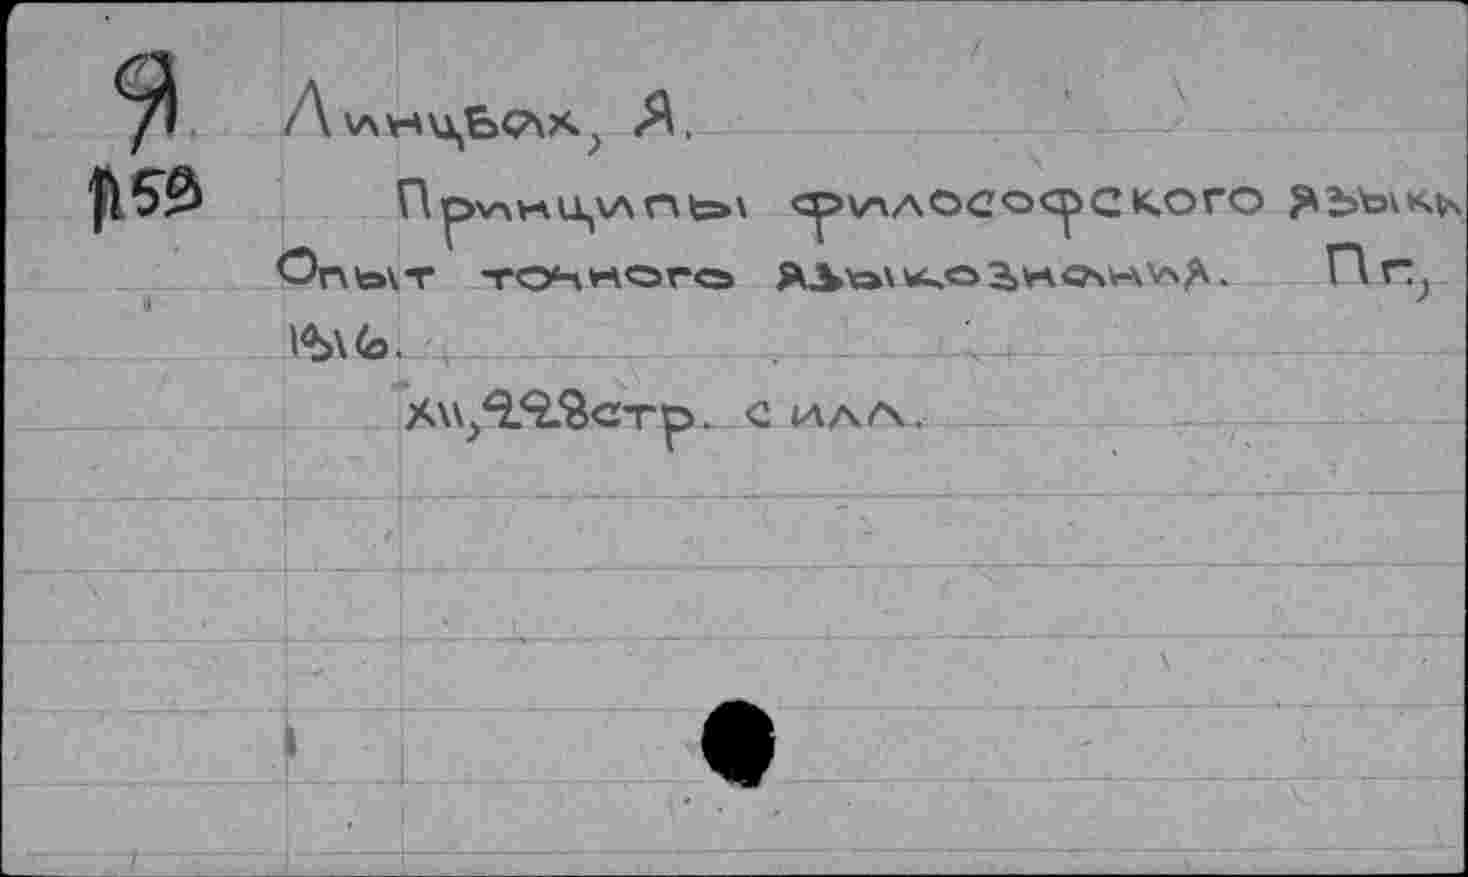 Я Линцбах, Я.
Л59 Принципы философского языка
Опыт точного языкознания. Пг.,
1916.
XII, 228 стр. с илл.